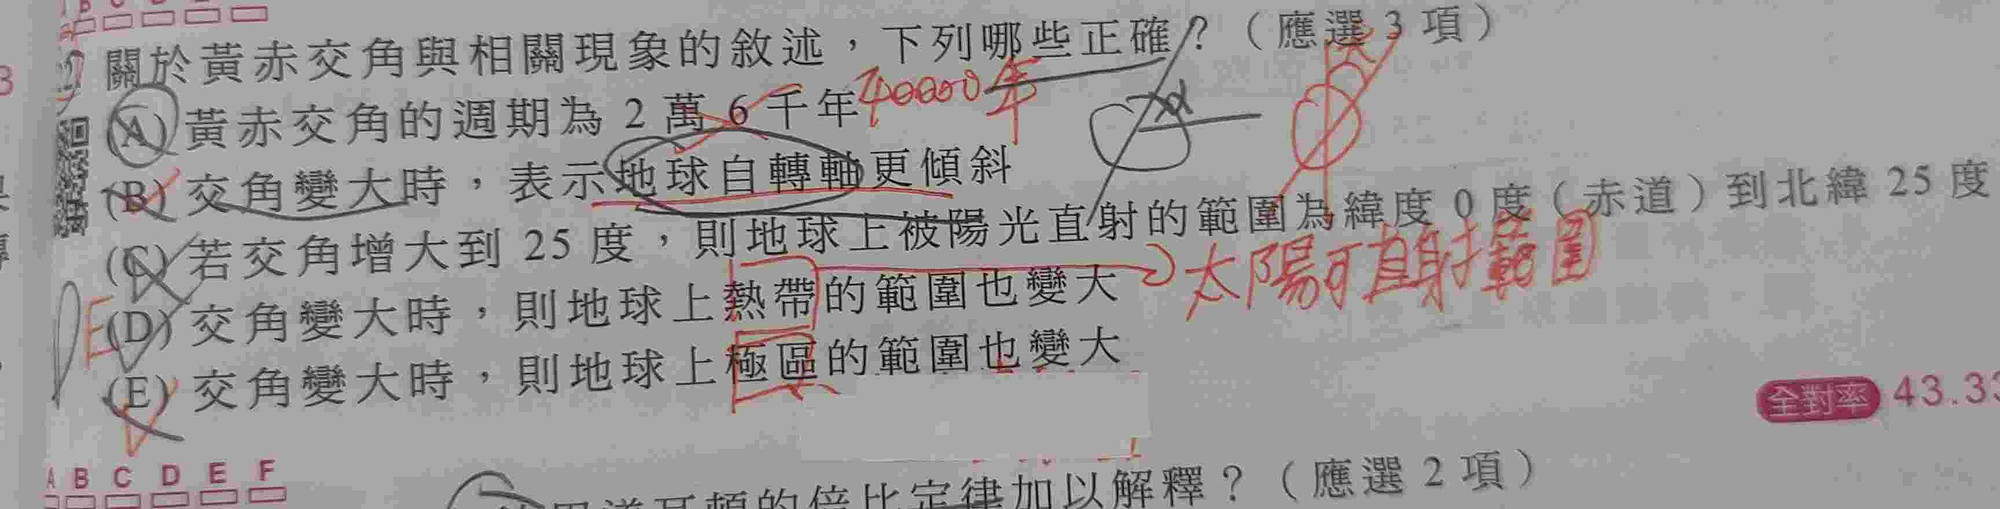 關於黃赤交角與相關現象的敘述，下列哪些正確？（應選 3 項）
(A) 黃赤交角的週期為 2 萬 6 千年 40000年
(B) 交角變大時，表示地球自轉軸更傾斜
(C) 若交角增大到 25 度，則地球上被陽光直射的範圍為緯度 0 度（赤道）到北緯 25 度
(D) 交角變大時，則地球上熱帶的範圍也變大 太陽可直射範圍
(E) 交角變大時，則地球上極區的範圍也變大
全對率 43.33
A B C D E F
倍比定律加以解釋？（應選 2 項）